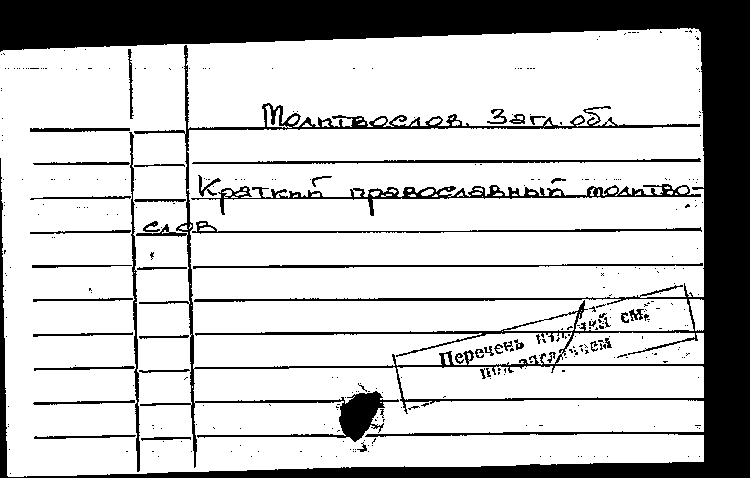 Молитвослов. Загл. обл.
Краткий православный молитво-
слов
Перечень изданий см.
под заглавием